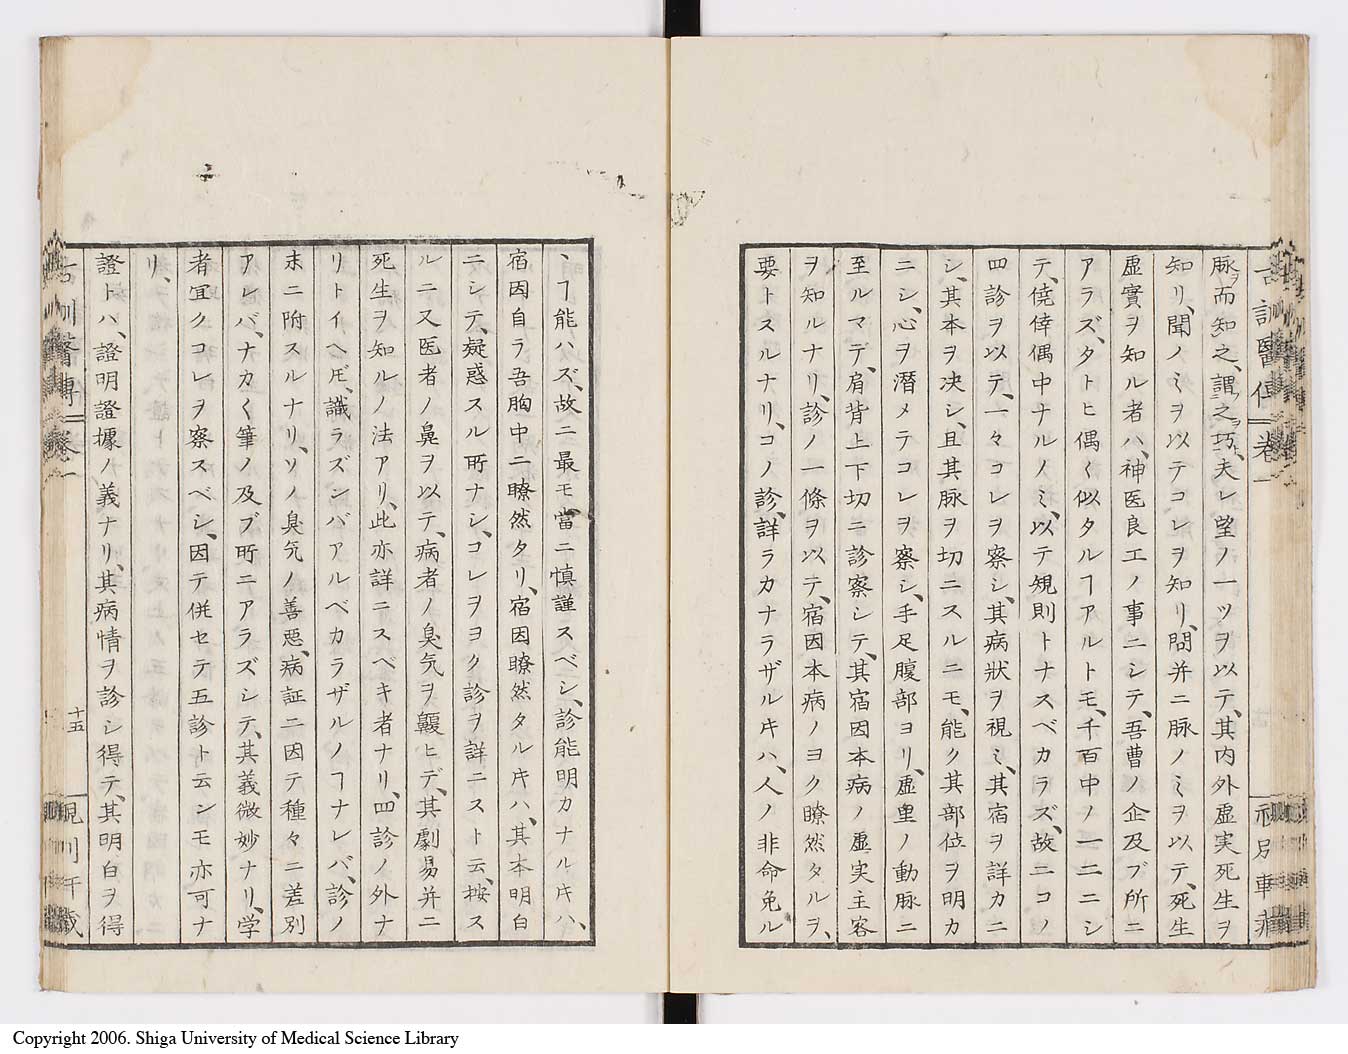 脉ヲ而知之、謂之ヲ巧ト、夫レ望ノ一ツヲ以テ、其内外虚実死生ヲ
知リ、聞ノミヲ以テコレヲ知リ、問并ニ脉ノミヲ以テ、死生
虚實ヲ知ル者ハ、神医良工ノ事ニシテ、吾曹ノ企及ブ所ニ
アラズ、タトヒ偶く似タルヿアルトモ、千百中ノ一二ニシ
テ、僥倖偶中ナルノミ、以テ規則トナスベカラズ、故ニコノ
四診ヲ以テ、一々コレヲ察シ、其病狀ヲ視ミ、其宿ヲ詳カニ
シ、其本ヲ决シ、且其脉ヲ切ニスルニモ、能ク其部位ヲ明カ
ニシ、心ヲ潛メテコレヲ察シ、手足腹部ヨリ、虚里ノ動脉ニ
至ルマデ、肩背上下切ニ診察シテ、其宿因本病ノ虚実主客
ヲ知ルナリ、診ノ一條ヲ以テ、宿因本病ノヨク瞭然タルヲ、
要トスルナリ、コノ診、詳ラカナラザル𪜈ハ、人ノ非命免ル
、ヿ能ハズ、故ニ最モ、當ニ慎謹スベシ、診能明カナル𪜈ハ、
宿因自ラ吾胸中ニ瞭然タリ、宿因瞭然タル𪜈ハ、其本明白
ニシテ、疑惑スル所ナシ、コレヲヨク診ヲ詳ニスト云、按ス
ルニ又医者ノ鼻ヲ以テ、病者ノ臭気ヲ齅ヒデ、其劇易并ニ
死生ヲ知ルノ法アリ、此亦詳ニスベキ者ナリ、四診ノ外ナ
リトイヘ𪜈、識ラズンバアルベカラザルノヿナレバ、診ノ
末ニ附スルナリ、ソノ臭気ノ善惡、病証ニ因テ種々ニ差別
アレバ、ナカく筆ノ及ブ所ニアラズシテ、其義微妙ナリ、学
者宜クコレヲ察スベシ、因テ併セテ五診ト云ンモ亦可ナ
リ、
證トハ、證明證據ノ義ナリ、其病情ヲ診シ得テ、其明白ヲ得
古訓醫傳
卷一
十五
Copyright 2006. Shiga University of Medical Science Library